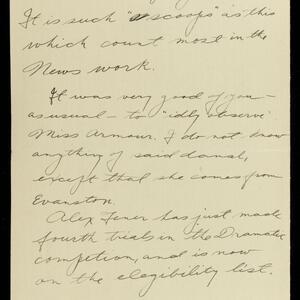 It is such "scoops" as this
which count most in the
News work.
It was very good of you –
as usual – to "idly observe"
Miss Armour. I do not know
anything of said damsel,
except that she comes from
Evanston.
Alex Fener has just made
fourth trials in the Dramatic
competion, and is now
on the elegibility list.